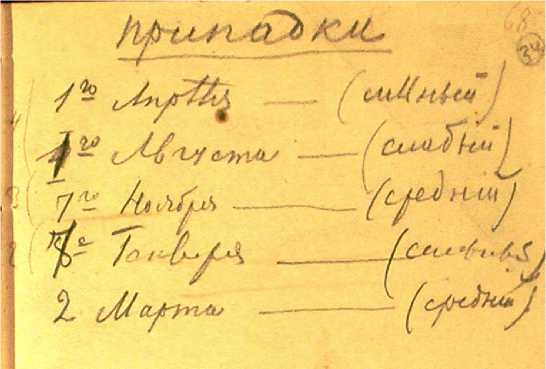 припадки
1го Апреля — (сильный)
1го Августа — (слабый)
7го Ноября — (средній)
Генваря —
2 Марта — (средній)